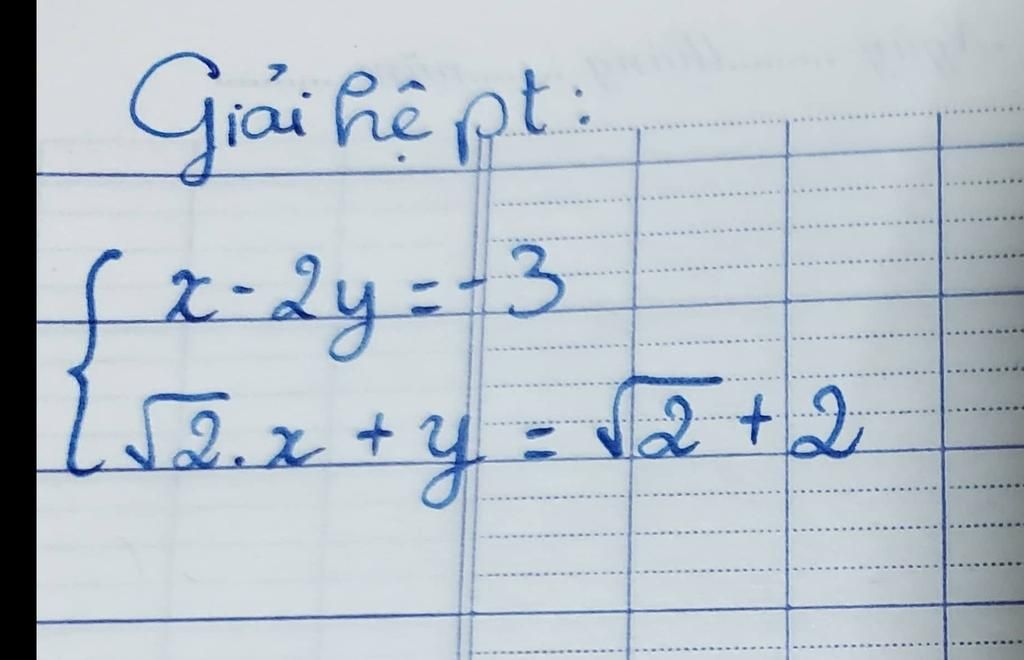 Giải hệ pt:
x - 2y = -3
√2.x + y = √2 + 2